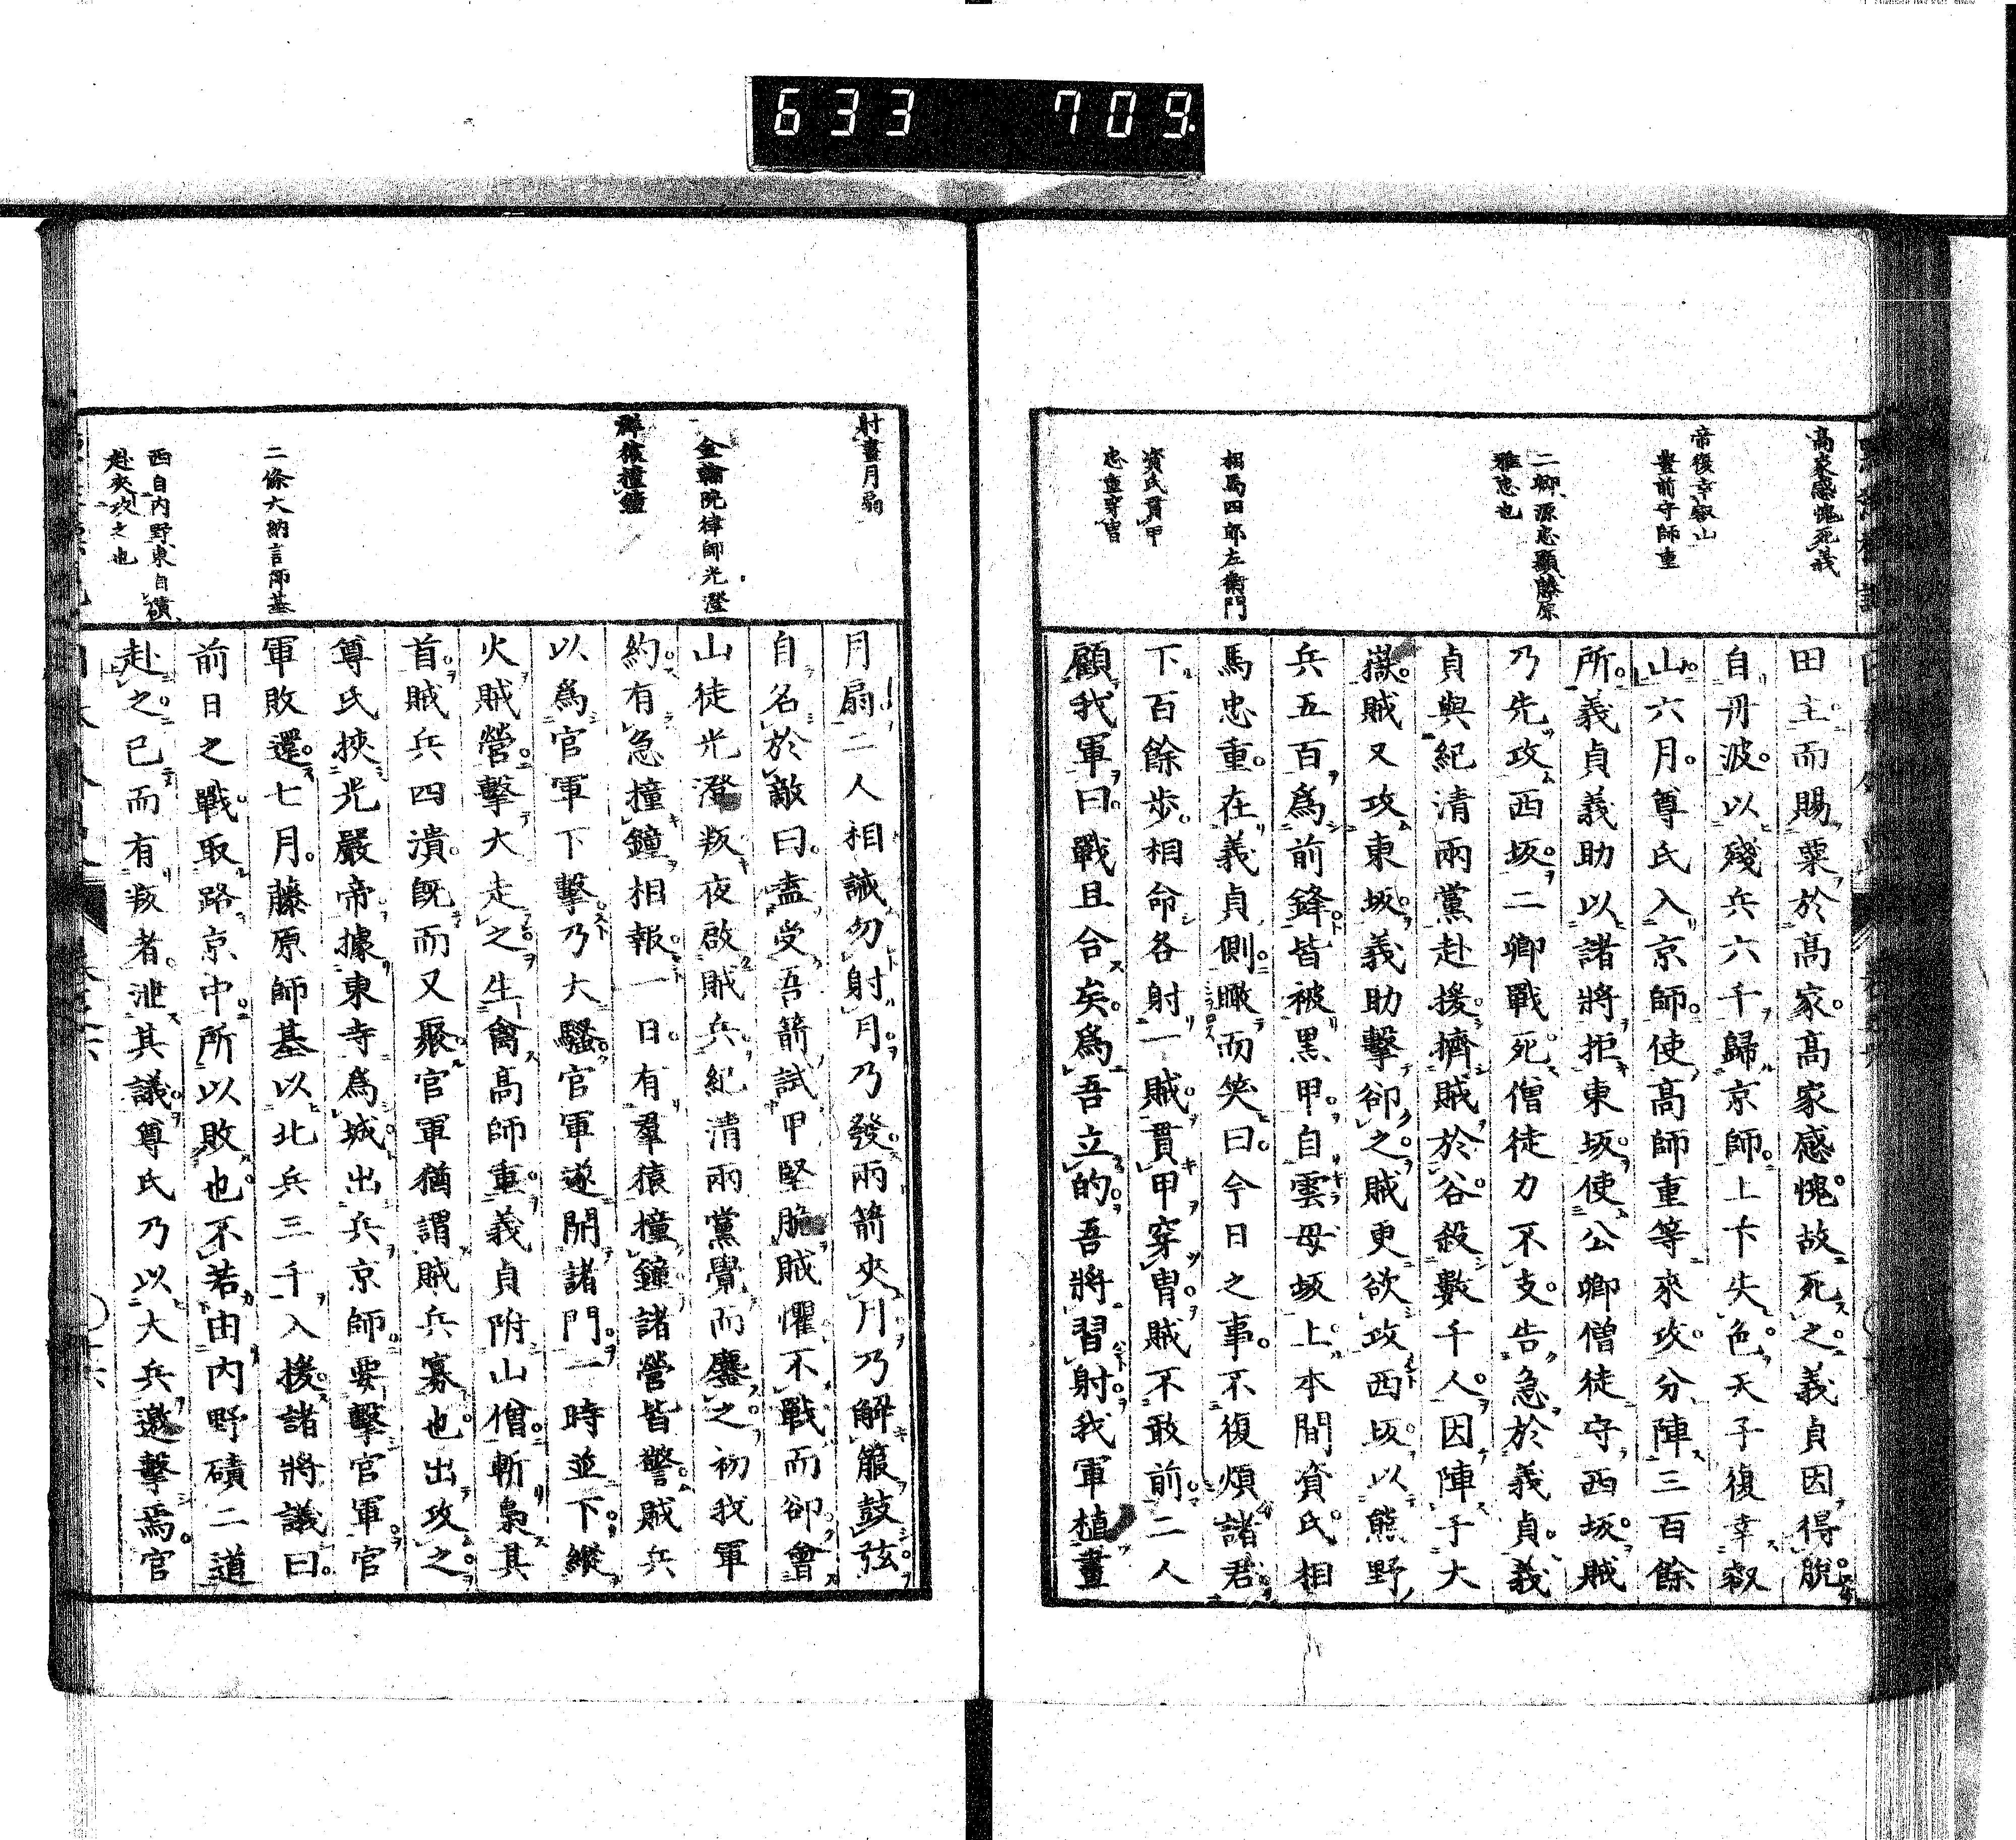 633 709
高家感愧死義
帝復幸叡山
豊前守師重
二卿、源忠顯藤原
雅忠也
相馬四郎左衛門
資氏貫甲
忠重穿冑
田主而賜粟於高家。高家感愧。故死之。義貞因得脫。
自丹波。以殘兵六千歸京師。上下失色。天子復幸叡
山。六月。尊氏入京師。使高師重等來攻。分陣三百餘
所。義貞義助以諸將拒東坂。使公卿僧徒守西坂。賊
乃先攻西坂。二卿戰死。僧徒力不支。告急於義貞。義
貞與紀清兩黨赴援。擠賊於谷。殺數千人。因陣于大
嶽。賊又攻東坂。義助擊卻之。賊更欲攻西坂。以熊野
兵五百爲前鋒。皆被黑甲。自雲母坂上。本間資氏。相
馬忠重。在義貞側。瞰而笑曰。今日之事。不復煩諸君。
下百餘步。相命各射一賊。貫甲穿冑。賊不敢前。二人
顧我軍曰。戰且合矣。爲吾立的。吾將習射。我軍植畫
射畫月扇
金輪院律師光澄
群猿撞鐘
二條大納言師基
西自内野東自磧
赴夾攻之也
月扇。二人相誡勿射月。乃發兩箭夾月。乃解箙鼓弦。
自名於敵曰。盍受吾箭試甲堅脆。賊懼不戰而卻。會
山徒光澄叛。夜啟賊兵。紀清兩黨覺而鏖之。初我軍
約。有急撞鐘相報。一日。有羣猿撞鐘。諸營皆警。賊兵
以爲官軍下擊。乃大騷。官軍遂開諸門。一時並下。縱
火賊營。擊大走之。生禽高師重。義貞附山僧。斬梟其
首。賊兵四潰。既而又聚。官軍猶謂賊兵寡也。出攻之。
尊氏挾光嚴帝。據東寺爲城。出兵京師。要擊官軍。官
軍敗還。七月。藤原師基以北兵三千入援。諸將議曰。
前日之戰。取路京中。所以敗也。不若由内野磧二道
赴之。已而有叛者。泄其議。尊氏乃以大兵邀擊焉。官